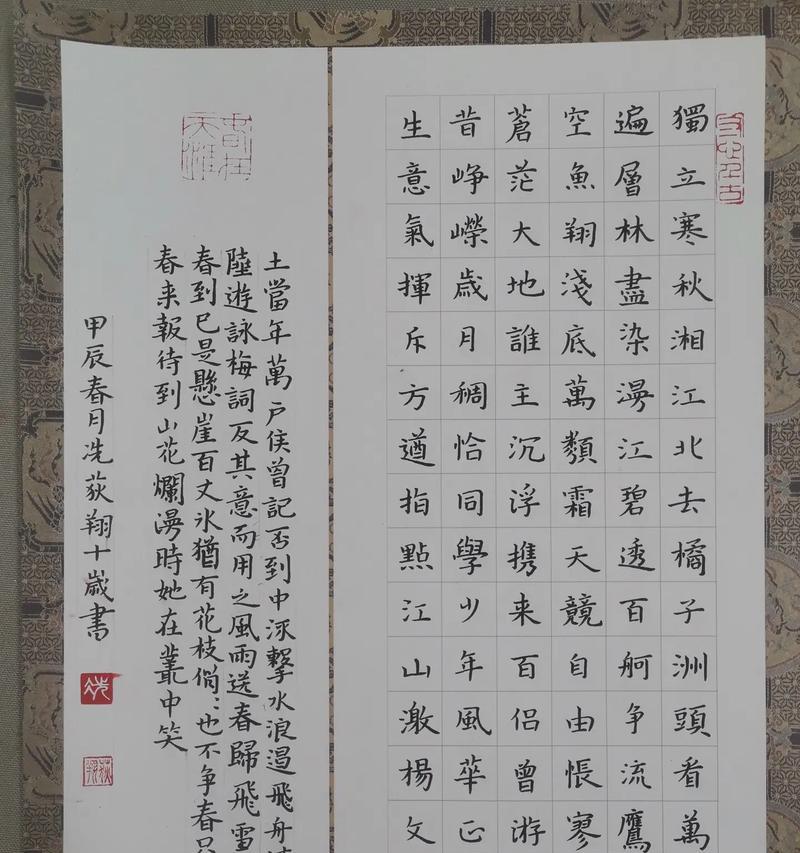 獨立寒秋湘江北去橘子洲頭看萬
遍層林盡染漫江碧透百舸争流鷹
空魚翔淺底萬類霜天競自由悵寥
蒼茫大地誰主沉浮携来百侣曾游
昔峥嶸歲月稠恰同學少年風華正
生意氣揮斥方遒指點江山激楊文
土當年萬户侯曾記否到中流擊水浪遏飛舟
陸遊詠梅詞反其意而用之風雨送春歸飛雪
春到已是懸崖百丈冰猶有花枝俏:也不争春只
春来報待到山花爛漫時她在叢中笑
甲辰春月冼荻翔十歲書
冼
荻翔